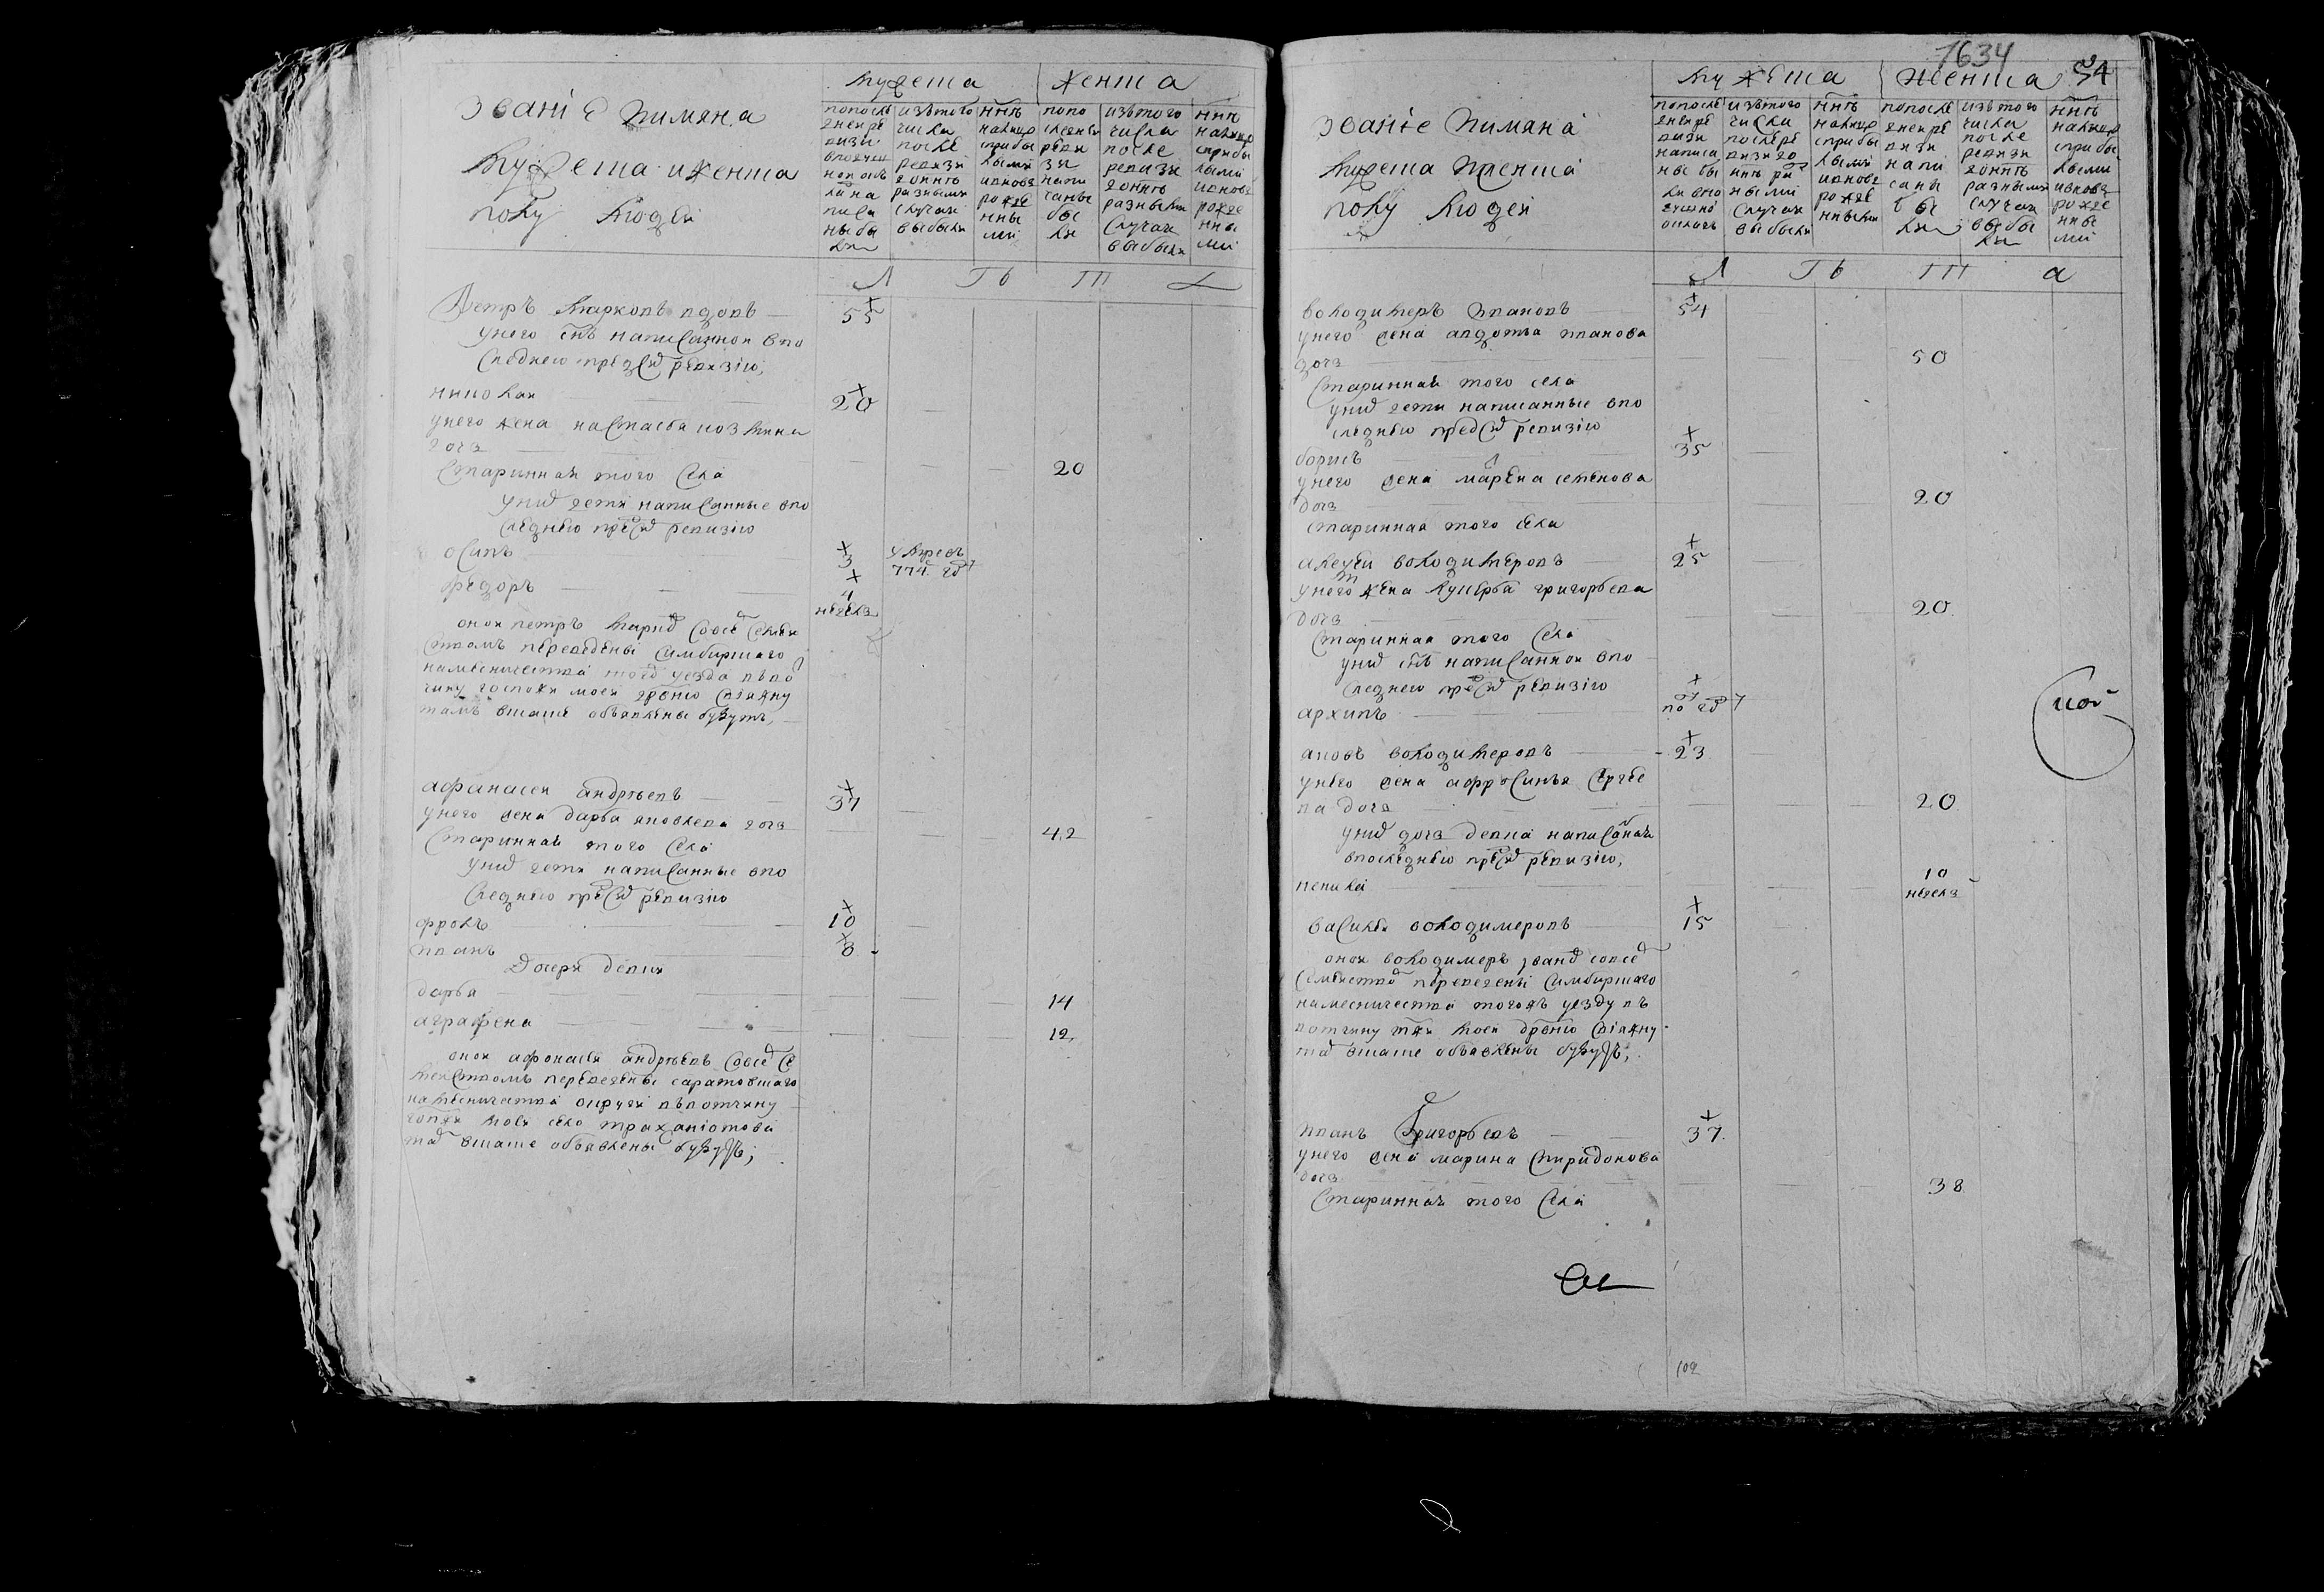 мужеска женска
званіе имяна
мужеска и женска
полу людей
по после
дней ре
визии
написа
ны бы
ли
изъ того
числа
после
ревизи
до ннѣ
разными
случаи
выбыли
ннѣ
налицо
с прибы
лыми
и вновь
рожде
нны
ми
по по
следней
реви
зи
напи
саны
бы
ли
изъ того
числа
после
ревизи
до ннѣ
разными
случаи
выбыли
ннѣ
налицо
с прибы
лыми
и вновь
рожде
нны
ми
Л Ѣ Т А
Петръ Марковъ вдовъ 55
у него снъ написанной в по
следнею пред сим ревизию,
николай 20
у него жена настасья козмина
дочь
старинная того села 20
у них дети написанные в по
следнею пред сим ревизию
осипъ 3 умре въ
774 год
федоръ 4
недели
оной петръ марков со всем семей
ством переведены симбирскаго
наместничества того уезда в во
чину госпожи моей
там в скаске объявлены будутъ,
афанасей андреевъ 37
у него жена дарья яковлева дочь
старинная того села 42
у них дети написанные в по
следнею пред сим ревизию
фролъ 10
иванъ 8
Дочери девки
дарья 14
аграфена 12
оной афонасей андреевъ со всем се
мейством переведены саратовскаго
наместничества округи в вотчину
госпжи моей село траханиотова
там в скаске объявлены будутъ;
1634
54
мужеска женска
званіе имяна
мужеска и женска
полу людей
по после
дней ре
визи
написа
ны бы
ли
изъ того
числа
после ре
визи до
ннѣ ра
зными
случаи
выбыли
ннѣ
налицо
с прибы
лыми
и вновь
рожде
нными
по после
дней ре
визи
напи
саны
бы
ли
изъ того
числа
после
ревизи
до ннѣ
разными
случаи
выбы
ли
ннѣ
налицо
с прибы
лыми
и вновь
рожде
нны
ми
Л Ѣ Т а
володимеръ ивановъ 54
у него жена авдотья иванова
дочь 50
старинная того села
у них дети написанные в по
следнею пред сим ревизию
борисъ 35
у него жена марѳена семенова
дочь 20
старинная того села
алексей володимеровъ 25
у него жена григорьева
дочь 20
старинная того села
у них снъ написанной в по
следнею пред сим ревизию
архипъ по год
яковъ володимеровъ 23
у него жена афросинья сергее
ва дочь 20
у них дочь девка написаная
в последнею пред сим ревизию,
10
недель
василей володимеровъ 15
оной володимеръ иванов со всем
семейством переведены симбирскаго
наместничества тогожъ уезду въ
вотчину гжи моей
там в скаске объявлены будутъ;
иванъ григорьевъ 37
у него жена марина спиридонова
дочь 38
старинная того села
102